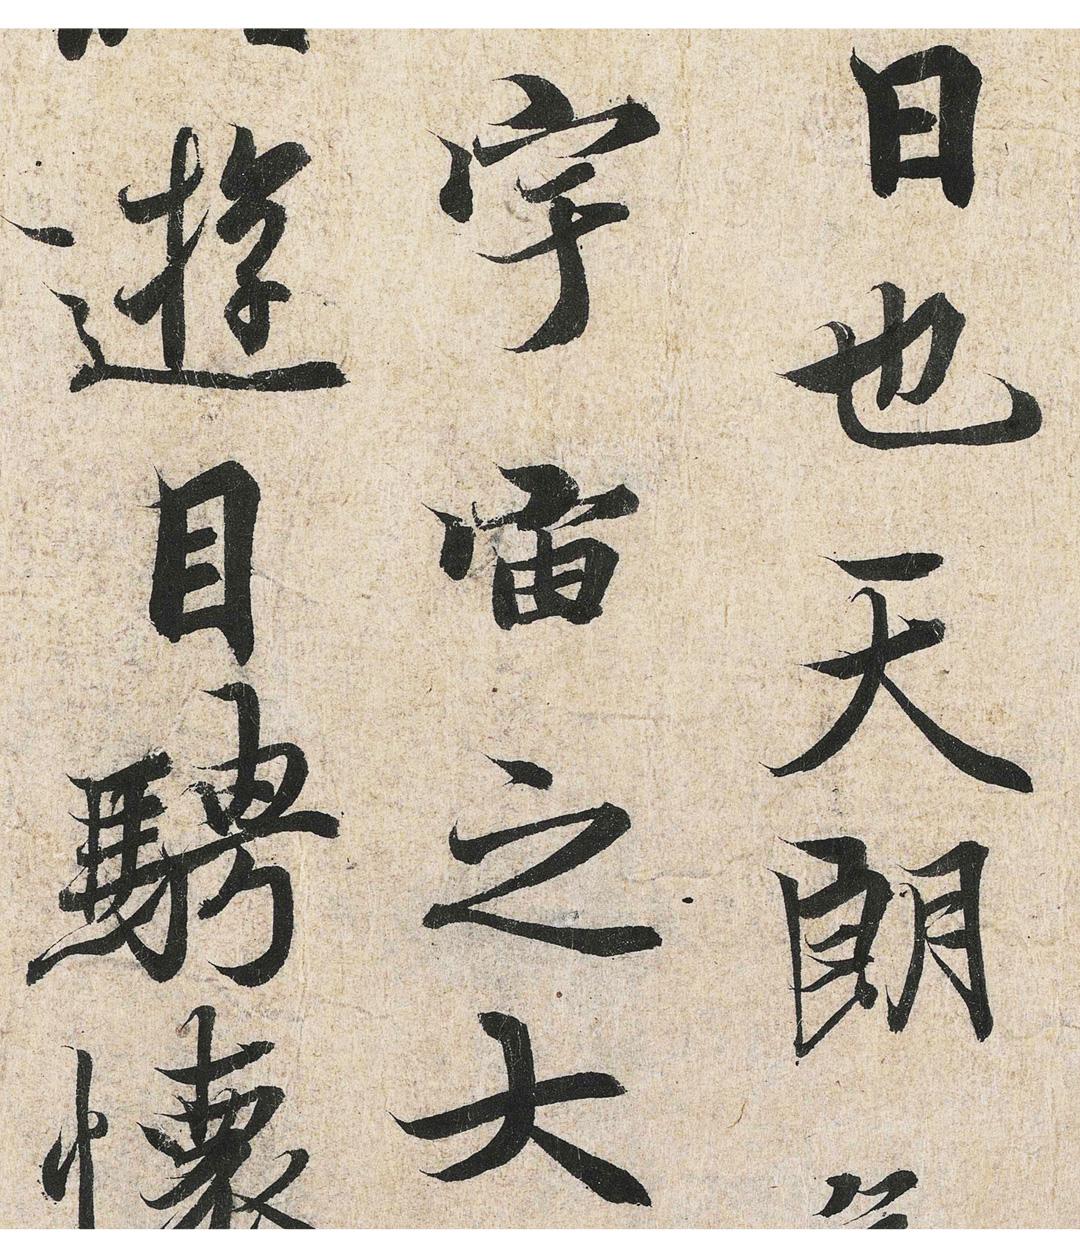 日也天朗
宇宙之大
遊目騁懷